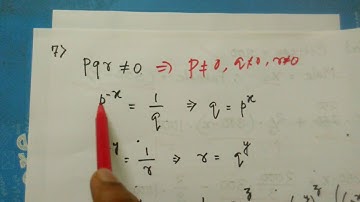 7>
pqr ≠ 0 ⇒ p≠0, q≠0, r≠0
p^-x = 1/q ⇒ q = p^x
y = 1/r ⇒ r = q^y